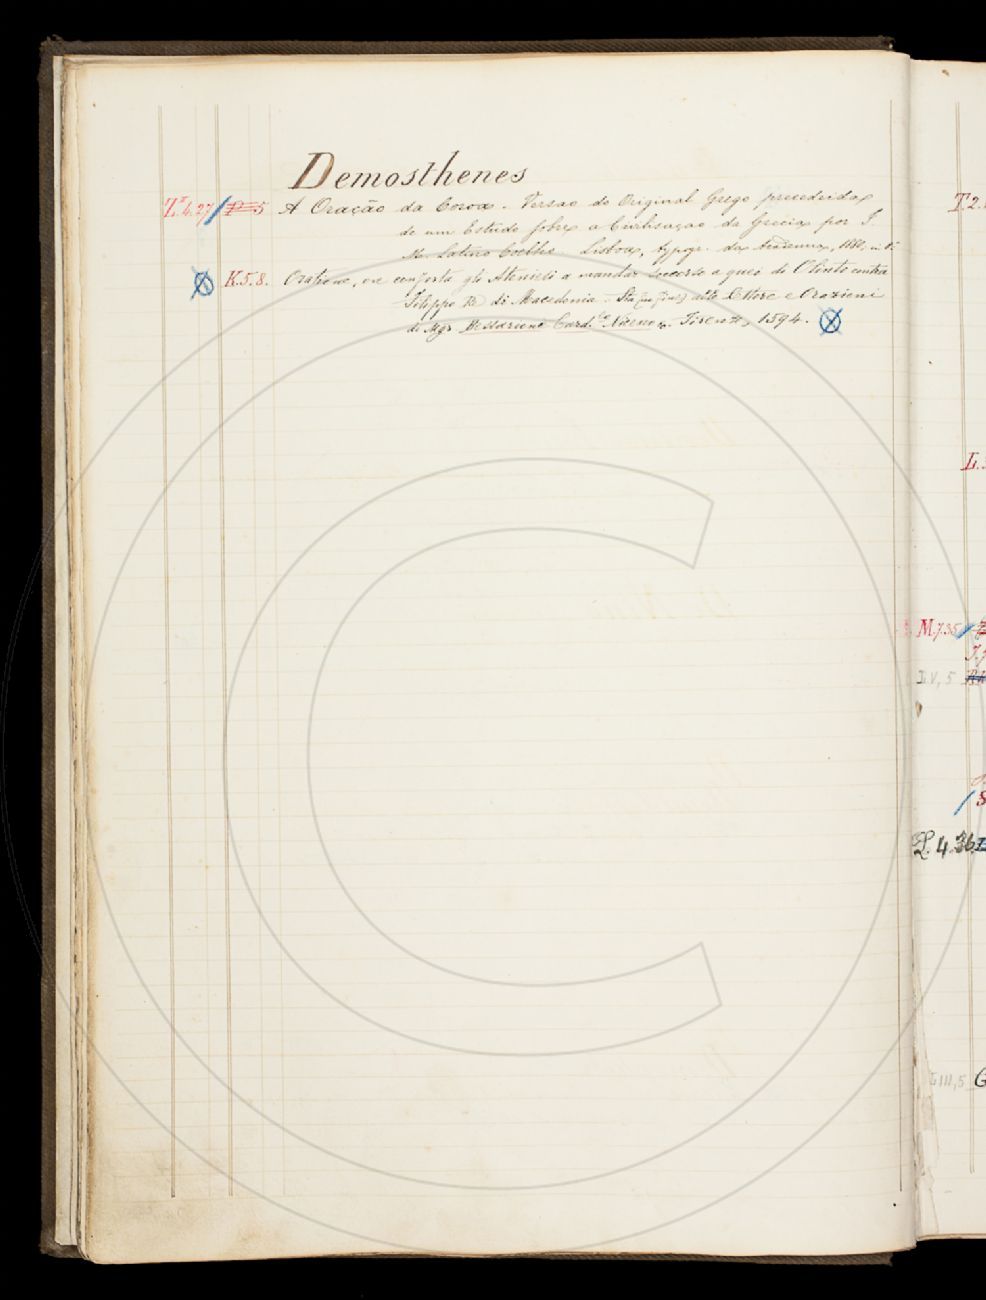 Demosthenes
Z.ª 4.27 / 5 A Oração da Coroa. Versao do Original Grego precedeida
de um Estudo sobre a Civilisaçao da Grecia por J.
M. Latino Coelho. Lisboa, typogr. da Academia, 1880, in 8º
K.5.8. Orazione, ove conforta gli Ateniesi a mandar soccorso a quei de Olinto contra
Filippo Re di Macedonia. Sta (in fine) alle Lettere e Orazioni
di Mgr Bessarione Card.le Niceno. Firenze, 1594.
T.2.
L.
M.7.35
L.V, 5
L. 4.36
L.III, 5